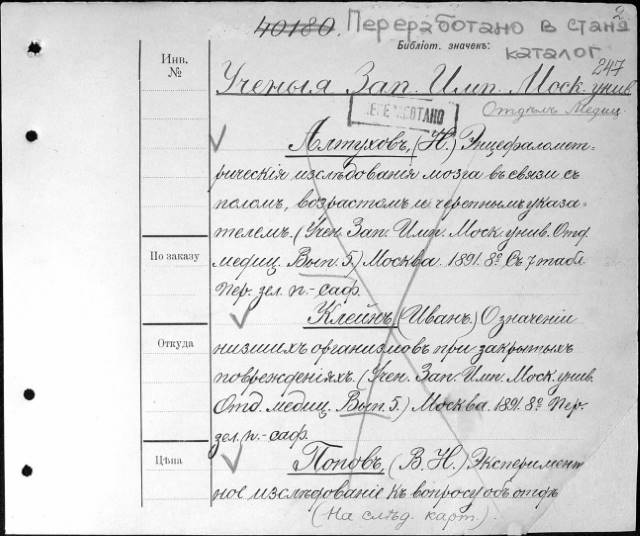 40180. Переработано в стан
2
Библіот. значекъ:
каталог
Инв.
№
247
Ученыя Зап. Имп. Моск. унив.
Отдѣлъ Медиц.
Алтуховъ, (Н.) Энцефаломет-
рическія изслѣдованія мозга въ связи съ
поломъ, возрастомъ и черепнымъ указа-
телемъ. (Учен. Зап. Имп. Моск. унив. Отд.
По заказу
медиц. Вып. 5.) Москва. 1891. 8º. Съ 7 табл.
Пер. зел. п.-саф.
Клейнъ, (Иванъ.) О значеніи
Откуда
низшихъ организмовъ при закрытыхъ
поврежденіяхъ. (Учен. Зап. Имп. Моск. унив.
Отд. медиц. Вып. 5.) Москва. 1891. 8º. Пер.
зел. п.-саф.
Цѣна
Поповъ, (В. Н.) Эксперимент
ное изслѣдованіе къ вопросу объ отдѣ
(На слѣд. карт.).